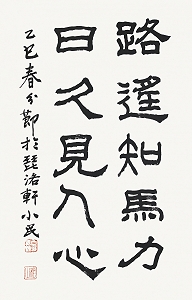 路遙知馬力
日久見人心
乙巳春分節於琵洛軒小民